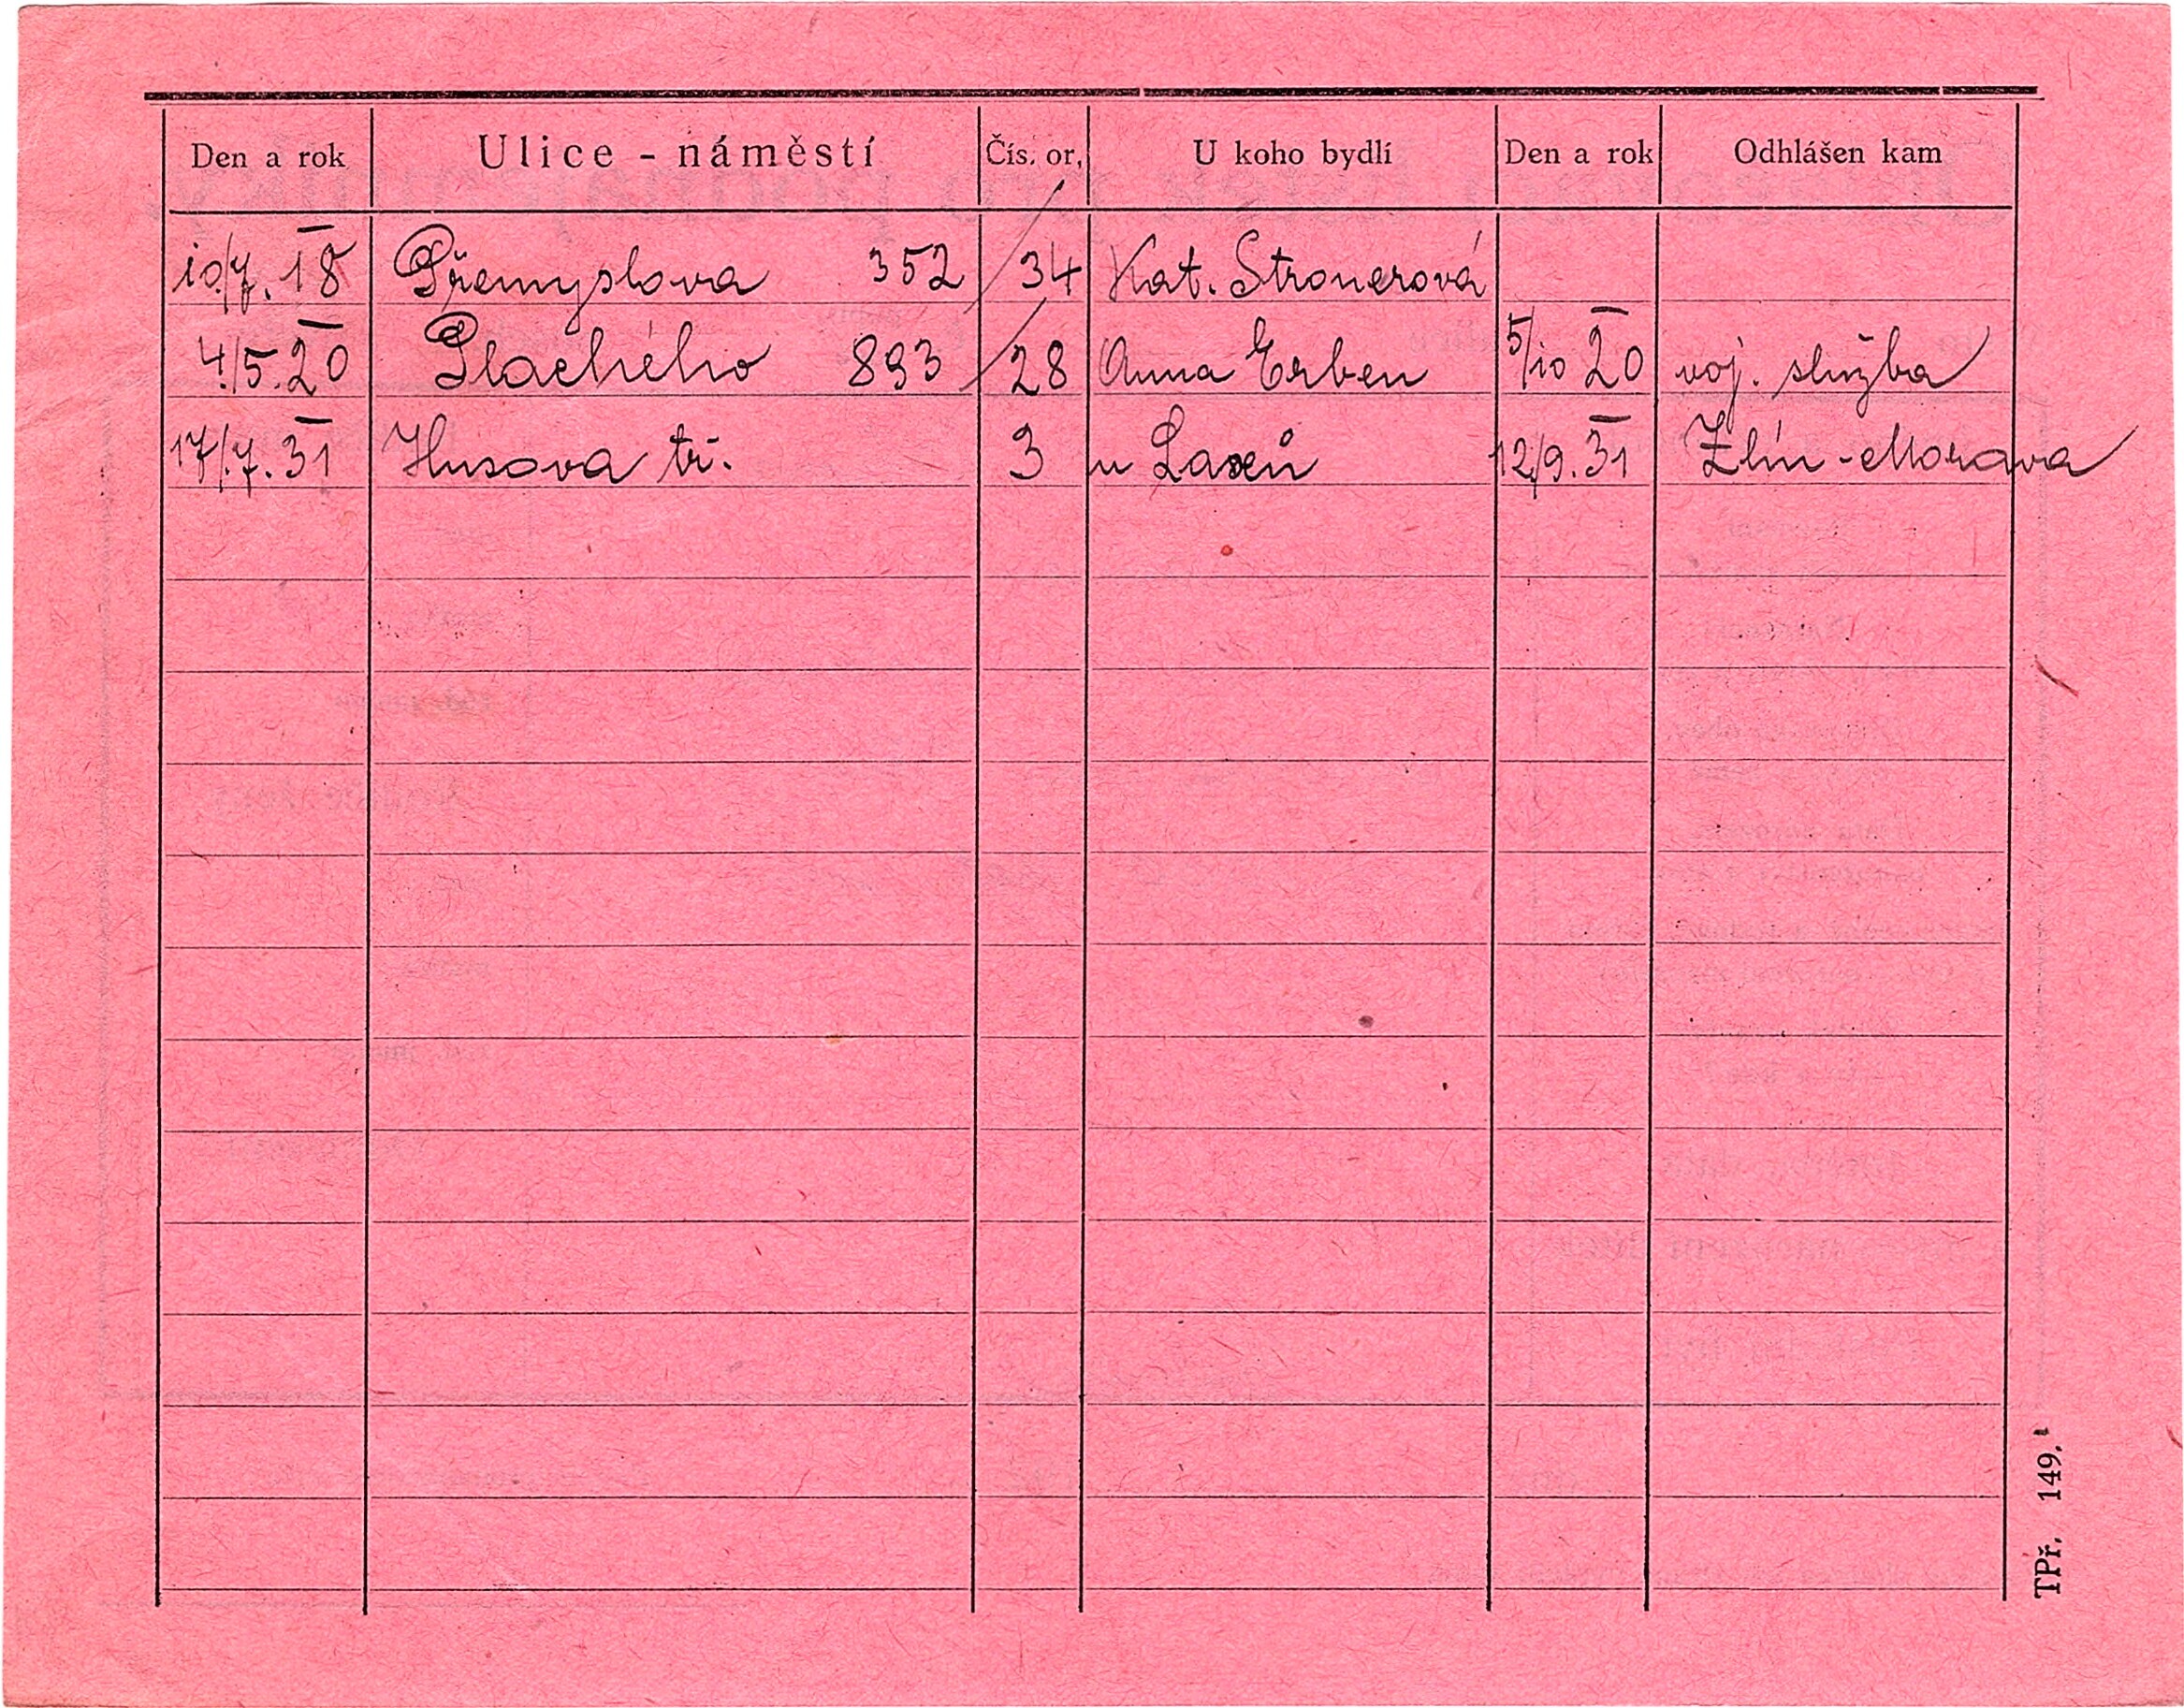 Den a rok Ulice - náměstí Čís. or. U koho bydlí Den a rok Odhlášen kam
10/7. 18 Přemyslova 352 / 34 Kat. Stronerová
4./5. 20 Plachého 893 / 28 Anna Erben 5/10 20 voj. služba
17/.7. 31 Husova tř. 3 u Laxů 12/9. 31 Zlín - Morava
TPř. 149.